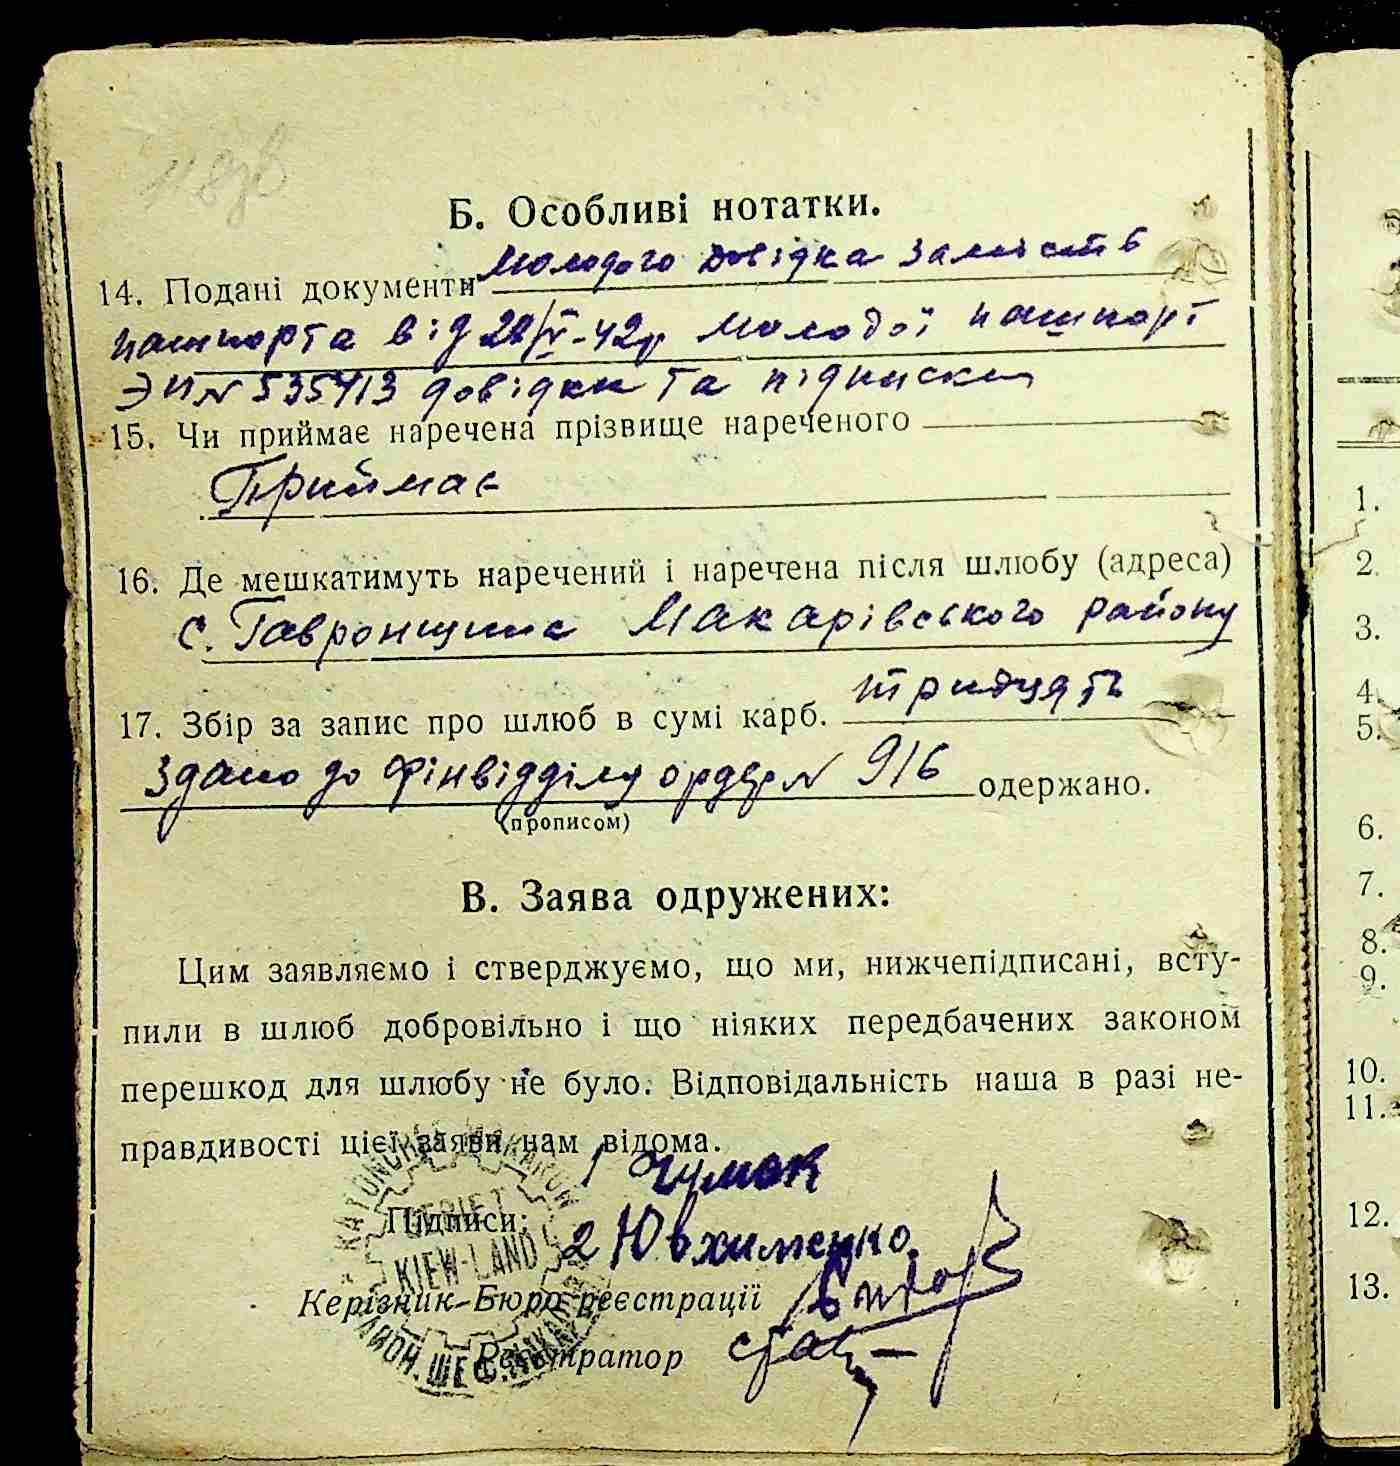 Б. Особливі нотатки.
14. Подані документи молодого довідка замість
пашпорта від 28/V-42р молодої пашпорт
ЭП № 535413 довідки та підписка
15. Чи приймає наречена прізвище нареченого
Приймає
16. Де мешкатимуть наречений і наречена після шлюбу (адреса)
с. Гавронщина Макарівського району
17. Збір за запис про шлюб в сумі карб. тридцять
Здано до Фінвідділу ордер № 916 одержано.
(прописом)
В. Заява одружених:
Цим заявляємо і стверджуємо, що ми, нижчепідписані, всту-
пили в шлюб добровільно і що ніяких передбачених законом
перешкод для шлюбу не було. Відповідальність наша в разі не-
правдивості цієї заяви нам відома.
1 Чумак
Підписи:
2 Ювхименко.
KIEW-LAND
Керівник Бюро реєстрації
Реєстратор
1.
2.
3.
4.
5.
6.
7.
8.
9.
10.
11.
12.
13.